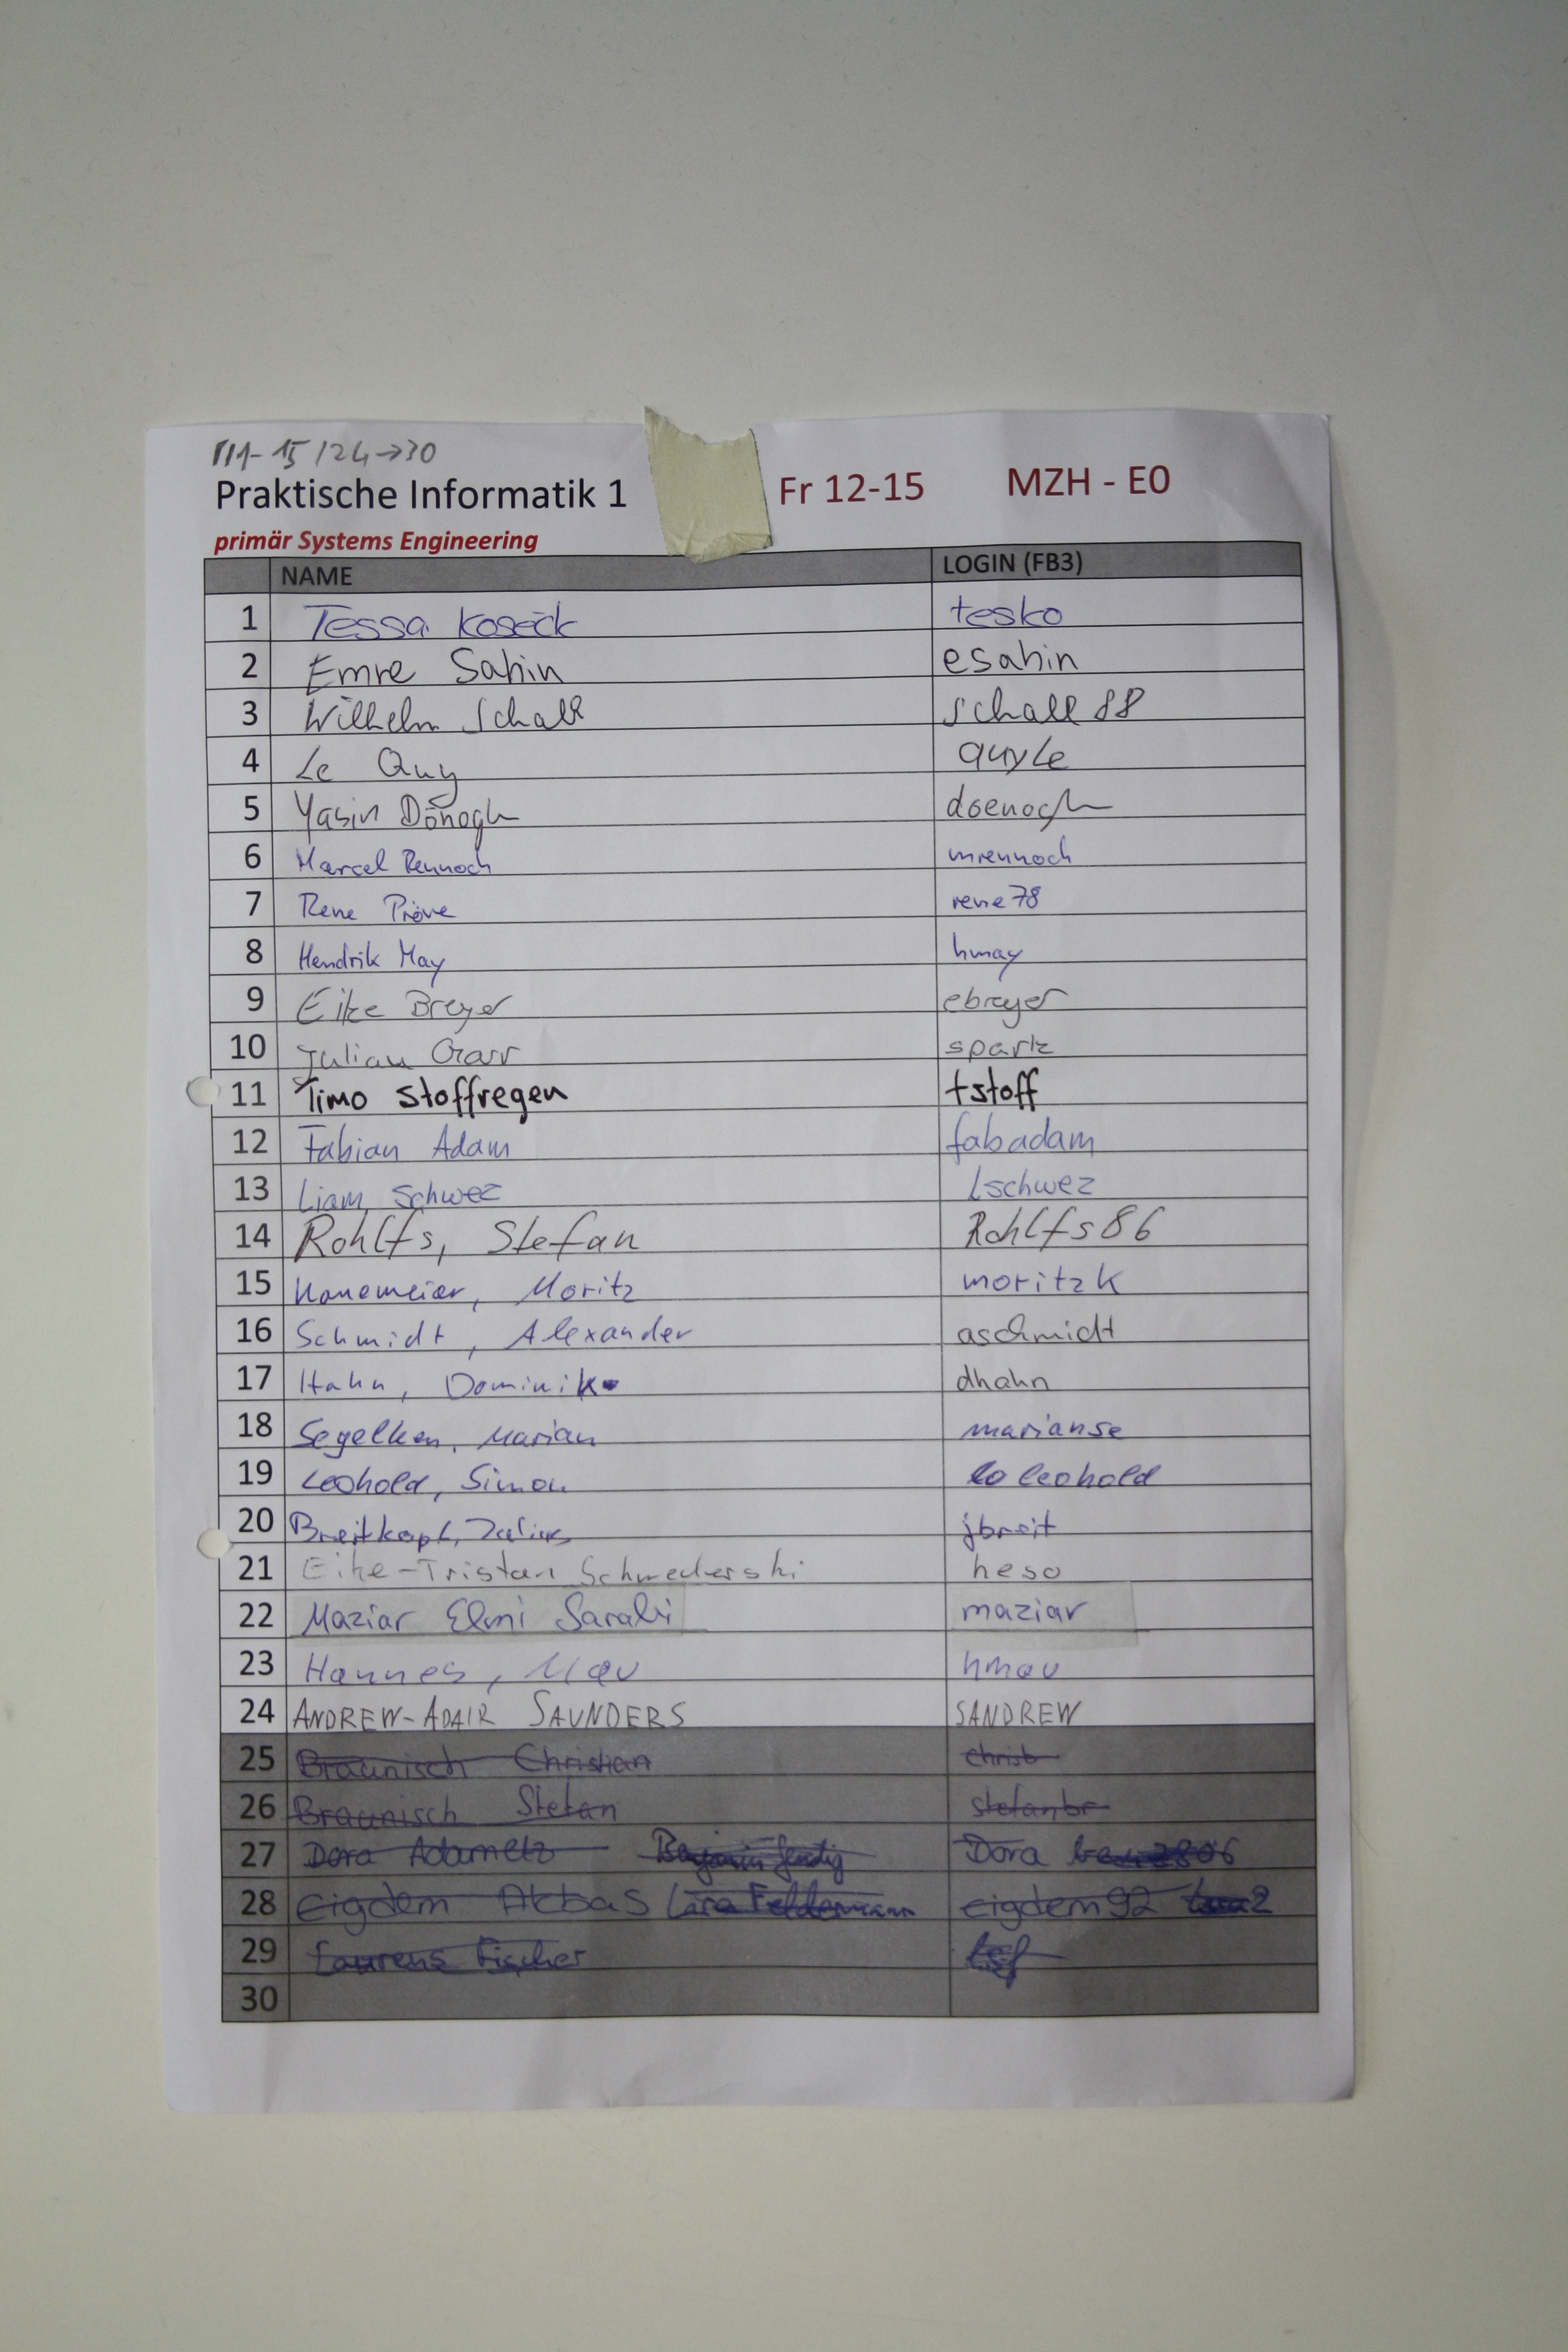 PI1-15/24→30
Praktische Informatik 1 Fr 12-15 MZH - E0
primär Systems Engineering
NAME LOGIN (FB3)
1 Tessa Koseck tesko
2 Emre Sahin esahin
3 Wilhelm Schall schall88
4 Le Quy quyle
5 Yasin Dönogh doenogh
6 Marcel Rennoch mrennoch
7 Rene Pröve rene78
8 Hendrik May hmay
9 Eike Breyer ebreyer
10 Julian spark
11 Timo Stoffregen tstoff
12 Fabian Adam fabadam
13 Liam Schwez lschwez
14 Rohlfs, Stefan Rohlfs86
15 Hanemeier, Moritz moritzk
16 Schmidt, Alexander aschmidt
17 Hahn, Dominik dhahn
18 Segelken, Marian marianse
19 Leohold, Simon loleohold
20 Breitkopf, Julius jbreit
21 Eike-Tristan Schwederski heso
22 Maziar Elmi Sarabi maziar
23 Hannes, Mau hmau
24 ANDREW-ADAIR SAUNDERS SANDREW
25 Braunisch Christian christb
26 Braunisch Stefan stefanbr
27 Dora Adametz Benjamin Dora
28 Eigdem Akbas Lara Feldermann eigdem92
29 Laurens Fischer
30